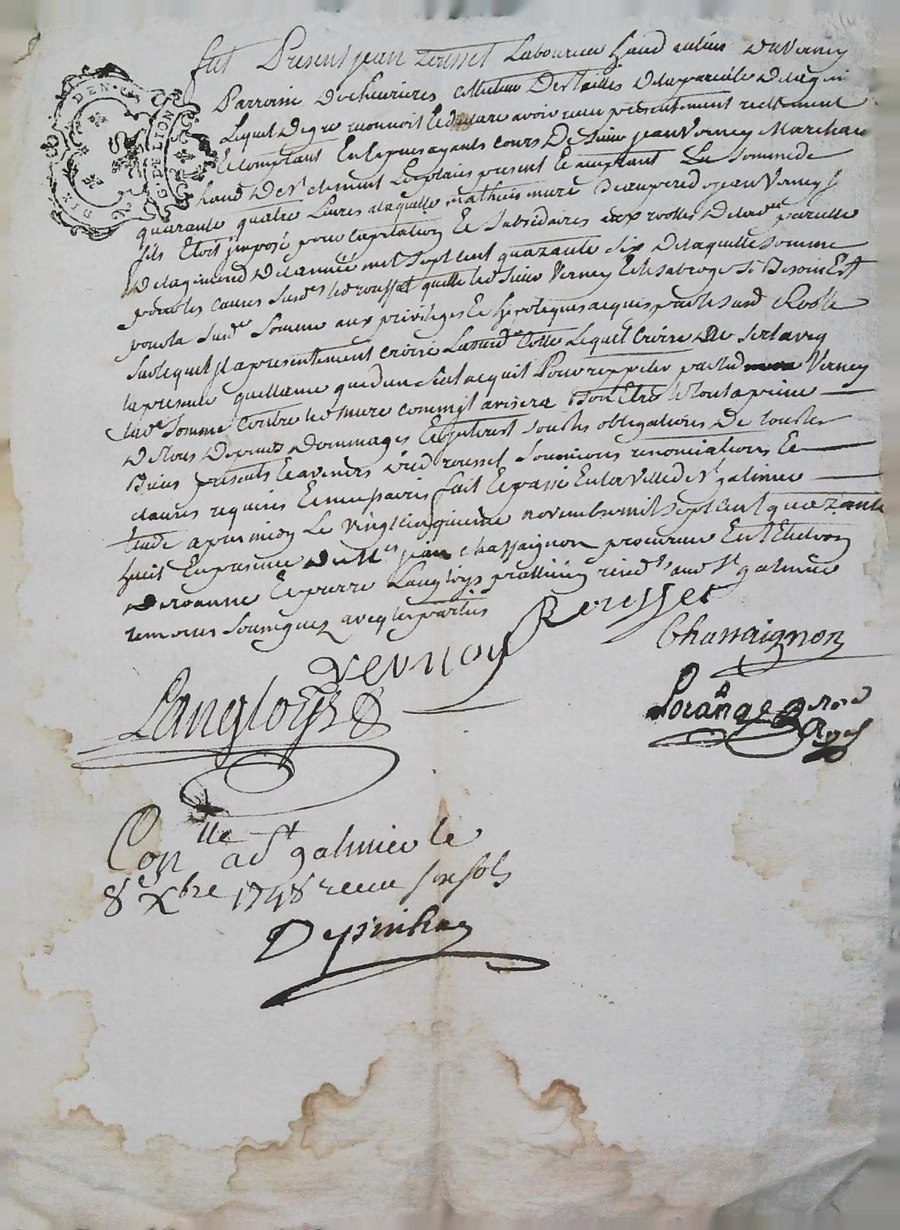 fut Present jean rousset Laboureur habd au lieu du Verney
Parroisse de chevrieres collecteur des tailles de la parcelle de
Lequel de gré reconnoit et declare avoir receu presentement reellement
et comptant en especes ayants cours de sieur jean Verney Marchand
habd de st clement Les places present et acceptant La somme de
quarante quatre Livres a laquelle mathieu mure jean Verney
fils etoit imposé pour capitation et subsidaires aux rolles de lad parcelle
de de l'année mil sept cent quarante six de laquelle somme
pour les causes susd led rousset quitte led sieur Verney et le subroge si Besoin Est
pour la susd somme aux privileges et hypoteques acquis par le susd Rolle
sur lequel il a presentement croisé Laditte Cotte Lequel Croise ne servira
la presente quittance que d'un seul acquit Pour repeter par led Verney
lad somme contre led mure comme il avisera le tout a peine
de tous depens dommages et interest sous les obligations de tous les
Biens presents et avenirs dud rousset soumissions renonciations et
clauses requises et necessaires fait et passé en la ville de st galmier
etude apres midy Le vingt cinquieme novembre mil sept cent quarante
huit en presence de Me jean chassaignon procureur en l'Election
de roanne et pierre Langloys praticien resid aud st galmier
temoins soussignez avec les parties
Rousset
Verney
Chassaignon
Langloys
Lorange nore
Royal
Conlle a St galmier le
8e Xbre 1748 receu six sols
G. DE LION